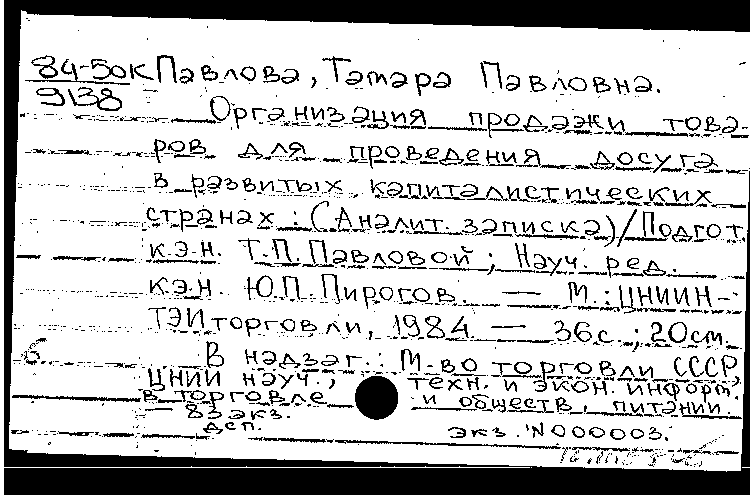 84-50К Павлова, Тамара Павловна.
9138
Организация продажи това-
ров для проведения досуга
в развитых капиталистических
странах : (Аналит. записка) / Подгот.
к.э.н. Т.П. Павловой ; Науч. ред.
к.э.н. Ю.П. Пирогов. — М. : ЦНИИН-
ТЭИторговли, 1984 — 36с. ; 20см.
б. В надзаг.: М-во торговли СССР,
ЦНИИ науч., техн. и экон. информ.
в торговле и обществ. питании.
— 83 экз.
дсп. экз. N000003.